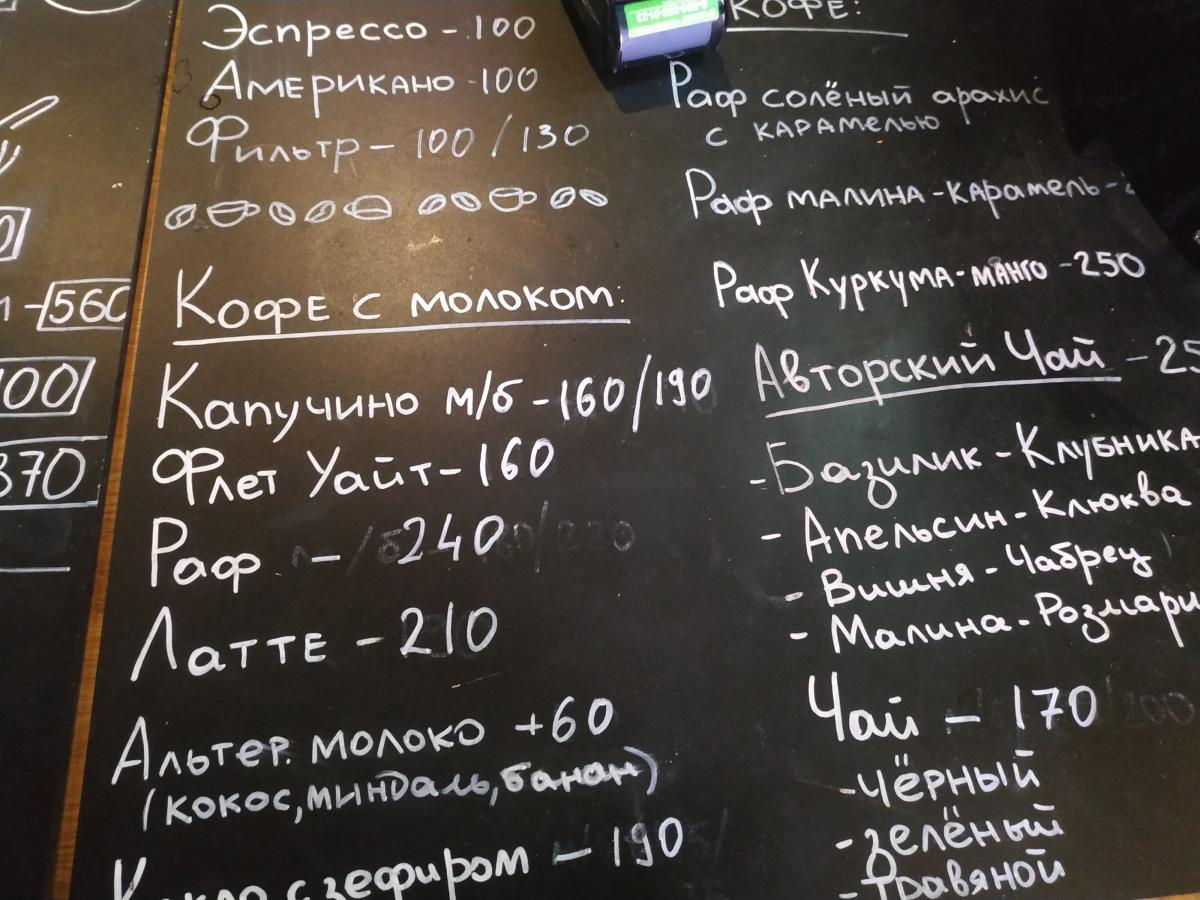 Эспрессо - 100
Американо - 100
Фильтр - 100/130
Кофе с молоком:
Капучино м/б - 160/190
Флет Уайт - 160
Раф - 240
Латте - 210
Альтер. молоко +60
(кокос, миндаль, банан)
с зефиром - 190
КОФЕ:
Раф солёный арахис
с карамелью
Раф малина-карамель -
Раф Куркума-манго -250
Авторский Чай - 25
- Базилик - Клубника
- Апельсин-Клюква
- Вишня-Чабрец
- Малина-Розмари
Чай - 170
-чёрный
-зелёный
-травяной
-560
100
370